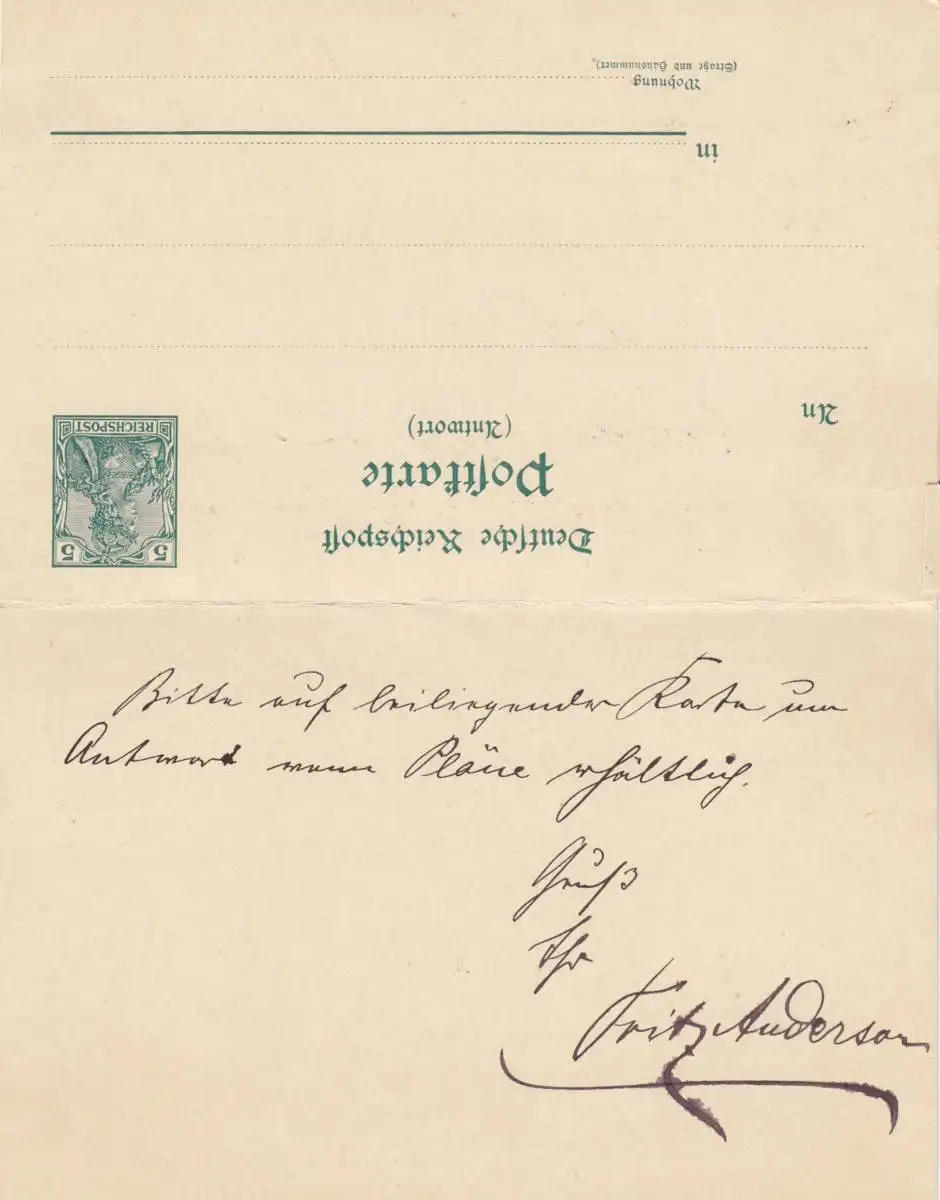 (Straße und Hausnummer)
Wohnung
in
An
(Antwort)
Postkarte
Deutsche Reichspost
REICHSPOST
5 5
Bitte auf beiliegender Karte um
Antwort wenn Pläne erhältlich.
Gruß
Ihr
Fritz Anderson